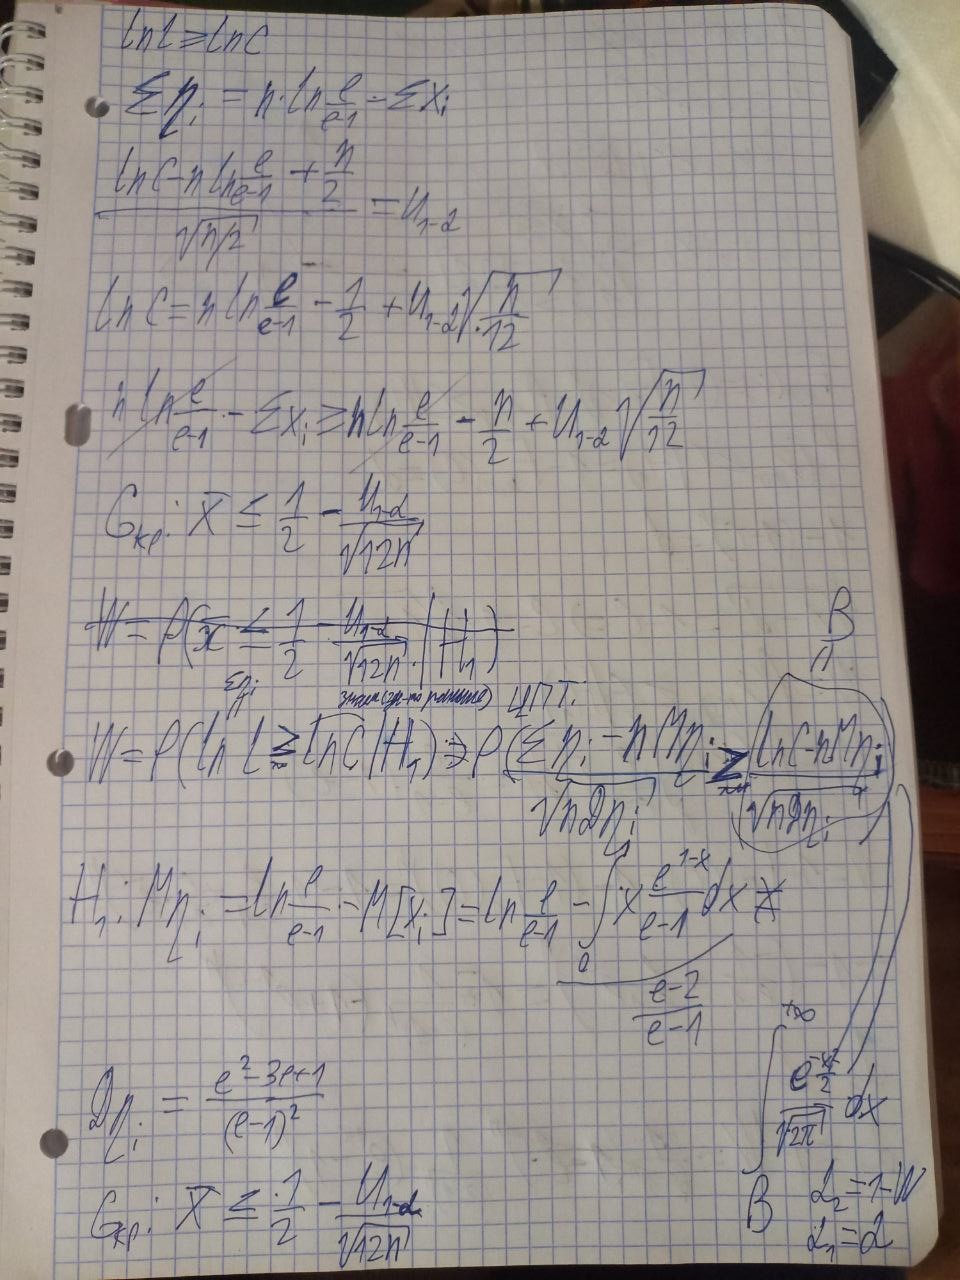 ln L ≥ ln C
Ση_i = n·ln e/(e-1) - Σx_i
(ln C - n ln e/(e-1) + n/2)/√(n/12) = U_{1-α}
ln C = n ln e/(e-1) - 1/2 + U_{1-α} √(n/12)
n ln e/(e-1) - Σx_i ≥ n ln e/(e-1) - n/2 + U_{1-α} √(n/12)
G_кр: x̄ ≤ 1/2 - U_{1-α}/√(12n)
W = P(x̄ ≤ 1/2 - U_{1-α}/√(12n) | H_1)
B
"
Ση_i
знаем (где-то раньше) ЦПТ:
W = P(ln L ≥ ln C | H_1) ⇒ P((Ση_i - nMη_i)/√(nDη_i) ≥ (ln C - nMη_i)/√(nDη_i))
H_1: Mη_i = ln e/(e-1) - M[x_i] = ln e/(e-1) - ∫_0^1 x e^{1-x}/(e-1) dx
(e-2)/(e-1)
Dη_i = (e^2-3e+1)/(e-1)^2
∫_B^{+∞} e^{-x^2/2}/√(2π) dx
G_кр: x̄ ≤ 1/2 - U_{1-α}/√(12n)
α_2 = 1-W
α_1 = α